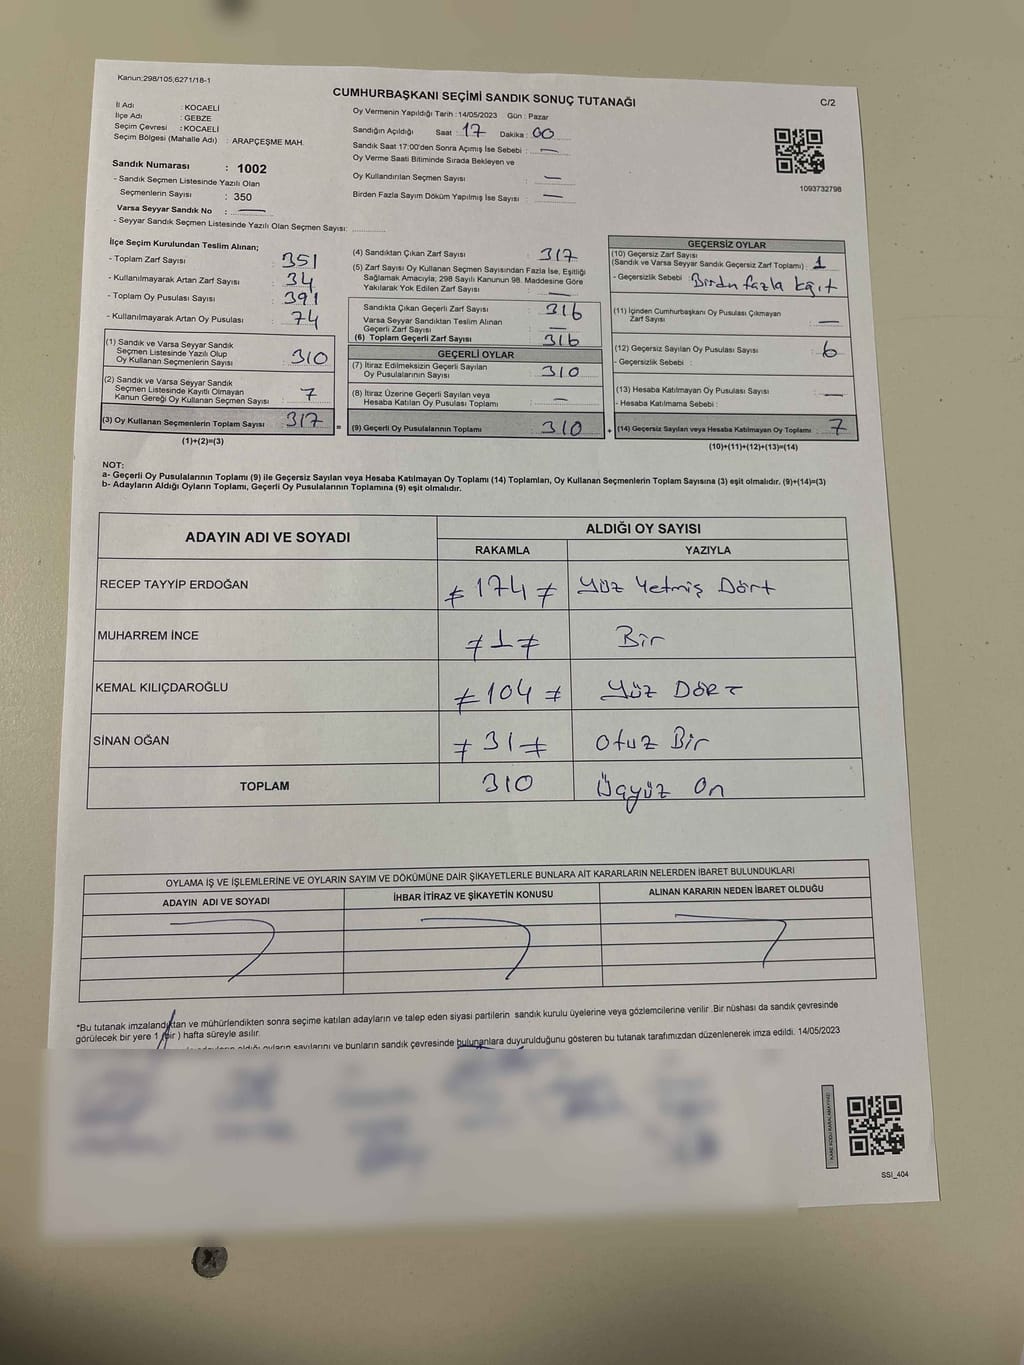 Kanun:298/105,6271/18-1
CUMHURBAŞKANI SEÇİMİ SANDIK SONUÇ TUTANAĞI
C/2
İl Adı : KOCAELİ
İlçe Adı : GEBZE
Seçim Çevresi : KOCAELİ
Seçim Bölgesi (Mahalle Adı) : ARAPÇEŞME MAH.
Sandık Numarası : 1002
- Sandık Seçmen Listesinde Yazılı Olan
Seçmenlerin Sayısı : 350
Varsa Seyyar Sandık No : —
- Seyyar Sandık Seçmen Listesinde Yazılı Olan Seçmen Sayısı:
Oy Vermenin Yapıldığı Tarih : 14/05/2023 Gün : Pazar
Sandığın Açıldığı Saat : 17 Dakika : 00
Sandık Saat 17:00'den Sonra Açımış İse Sebebi : —
Oy Verme Saati Bitiminde Sırada Bekleyen ve
Oy Kullandırılan Seçmen Sayısı : —
Birden Fazla Sayım Döküm Yapılmış İse Sayısı : —
1093732798
İlçe Seçim Kurulundan Teslim Alınan;
- Toplam Zarf Sayısı : 351
- Kullanılmayarak Artan Zarf Sayısı : 34
- Toplam Oy Pusulası Sayısı : 391
- Kullanılmayarak Artan Oy Pusulası : 74
(1) Sandık ve Varsa Seyyar Sandık
Seçmen Listesinde Yazılı Olup
Oy Kullanan Seçmenlerin Sayısı : 310
(2) Sandık ve Varsa Seyyar Sandık
Seçmen Listesinde Kayıtlı Olmayan
Kanun Gereği Oy Kullanan Seçmen Sayısı : 7
(3) Oy Kullanan Seçmenlerin Toplam Sayısı : 317 =
(1)+(2)=(3)
(4) Sandıktan Çıkan Zarf Sayısı : 317
(5) Zarf Sayısı Oy Kullanan Seçmen Sayısından Fazla İse, Eşitliği
Sağlamak Amacıyla; 298 Sayılı Kanunun 98. Maddesine Göre
Yakılarak Yok Edilen Zarf Sayısı : —
Sandıkta Çıkan Geçerli Zarf Sayısı : 316
Varsa Seyyar Sandıktan Teslim Alınan
Geçerli Zarf Sayısı : —
(6) Toplam Geçerli Zarf Sayısı : 316
GEÇERLİ OYLAR
(7) İtiraz Edilmeksizin Geçerli Sayılan
Oy Pusulalarının Sayısı : 310
(8) İtiraz Üzerine Geçerli Sayılan veya
Hesaba Katılan Oy Pusulası Toplamı : —
(9) Geçerli Oy Pusulalarının Toplamı : 310 +
GEÇERSİZ OYLAR
(10) Geçersiz Zarf Sayısı
(Sandık ve Varsa Seyyar Sandık Geçersiz Zarf Toplamı) : 1
- Geçersizlik Sebebi : Birdn fazla kğıt
(11) İçinden Cumhurbaşkanı Oy Pusulası Çıkmayan
Zarf Sayısı : —
(12) Geçersiz Sayılan Oy Pusulası Sayısı : 6
- Geçersizlik Sebebi :
(13) Hesaba Katılmayan Oy Pusulası Sayısı : —
- Hesaba Katılmama Sebebi :
(14) Geçersiz Sayılan veya Hesaba Katılmayan Oy Toplamı : 7
(10)+(11)+(12)+(13)=(14)
NOT:
a- Geçerli Oy Pusulalarının Toplamı (9) ile Geçersiz Sayılan veya Hesaba Katılmayan Oy Toplamı (14) Toplamları, Oy Kullanan Seçmenlerin Toplam Sayısına (3) eşit olmalıdır. (9)+(14)=(3)
b- Adayların Aldığı Oyların Toplamı, Geçerli Oy Pusulalarının Toplamına (9) eşit olmalıdır.
ADAYIN ADI VE SOYADI
ALDIĞI OY SAYISI
RAKAMLA YAZIYLA
RECEP TAYYİP ERDOĞAN ≠ 174 ≠ Yüz Yetmiş Dört
MUHARREM İNCE ≠ 1 ≠ Bir
KEMAL KILIÇDAROĞLU ≠ 104 ≠ Yüz DÖRT
SİNAN OĞAN ≠ 31 ≠ Otuz Bir
TOPLAM 310 Üçyüz On
OYLAMA İŞ VE İŞLEMLERİNE VE OYLARIN SAYIM VE DÖKÜMÜNE DAİR ŞİKAYETLERLE BUNLARA AİT KARARLARIN NELERDEN İBARET BULUNDUKLARI
ADAYIN ADI VE SOYADI İHBAR İTİRAZ VE ŞİKAYETİN KONUSU ALINAN KARARIN NEDEN İBARET OLDUĞU
*Bu tutanak imzalandıktan ve mühürlendikten sonra seçime katılan adayların ve talep eden siyasi partilerin sandık kurulu üyelerine veya gözlemcilerine verilir .Bir nüshası da sandık çevresinde
görülecek bir yere 1 (bir ) hafta süreyle asılır.
oyların sayılarını ve bunların sandık çevresinde bulunanlara duyurulduğunu gösteren bu tutanak tarafımızdan düzenlenerek imza edildi. 14/05/2023
KARE KODU KARALAMAYINIZ!
SSI_404